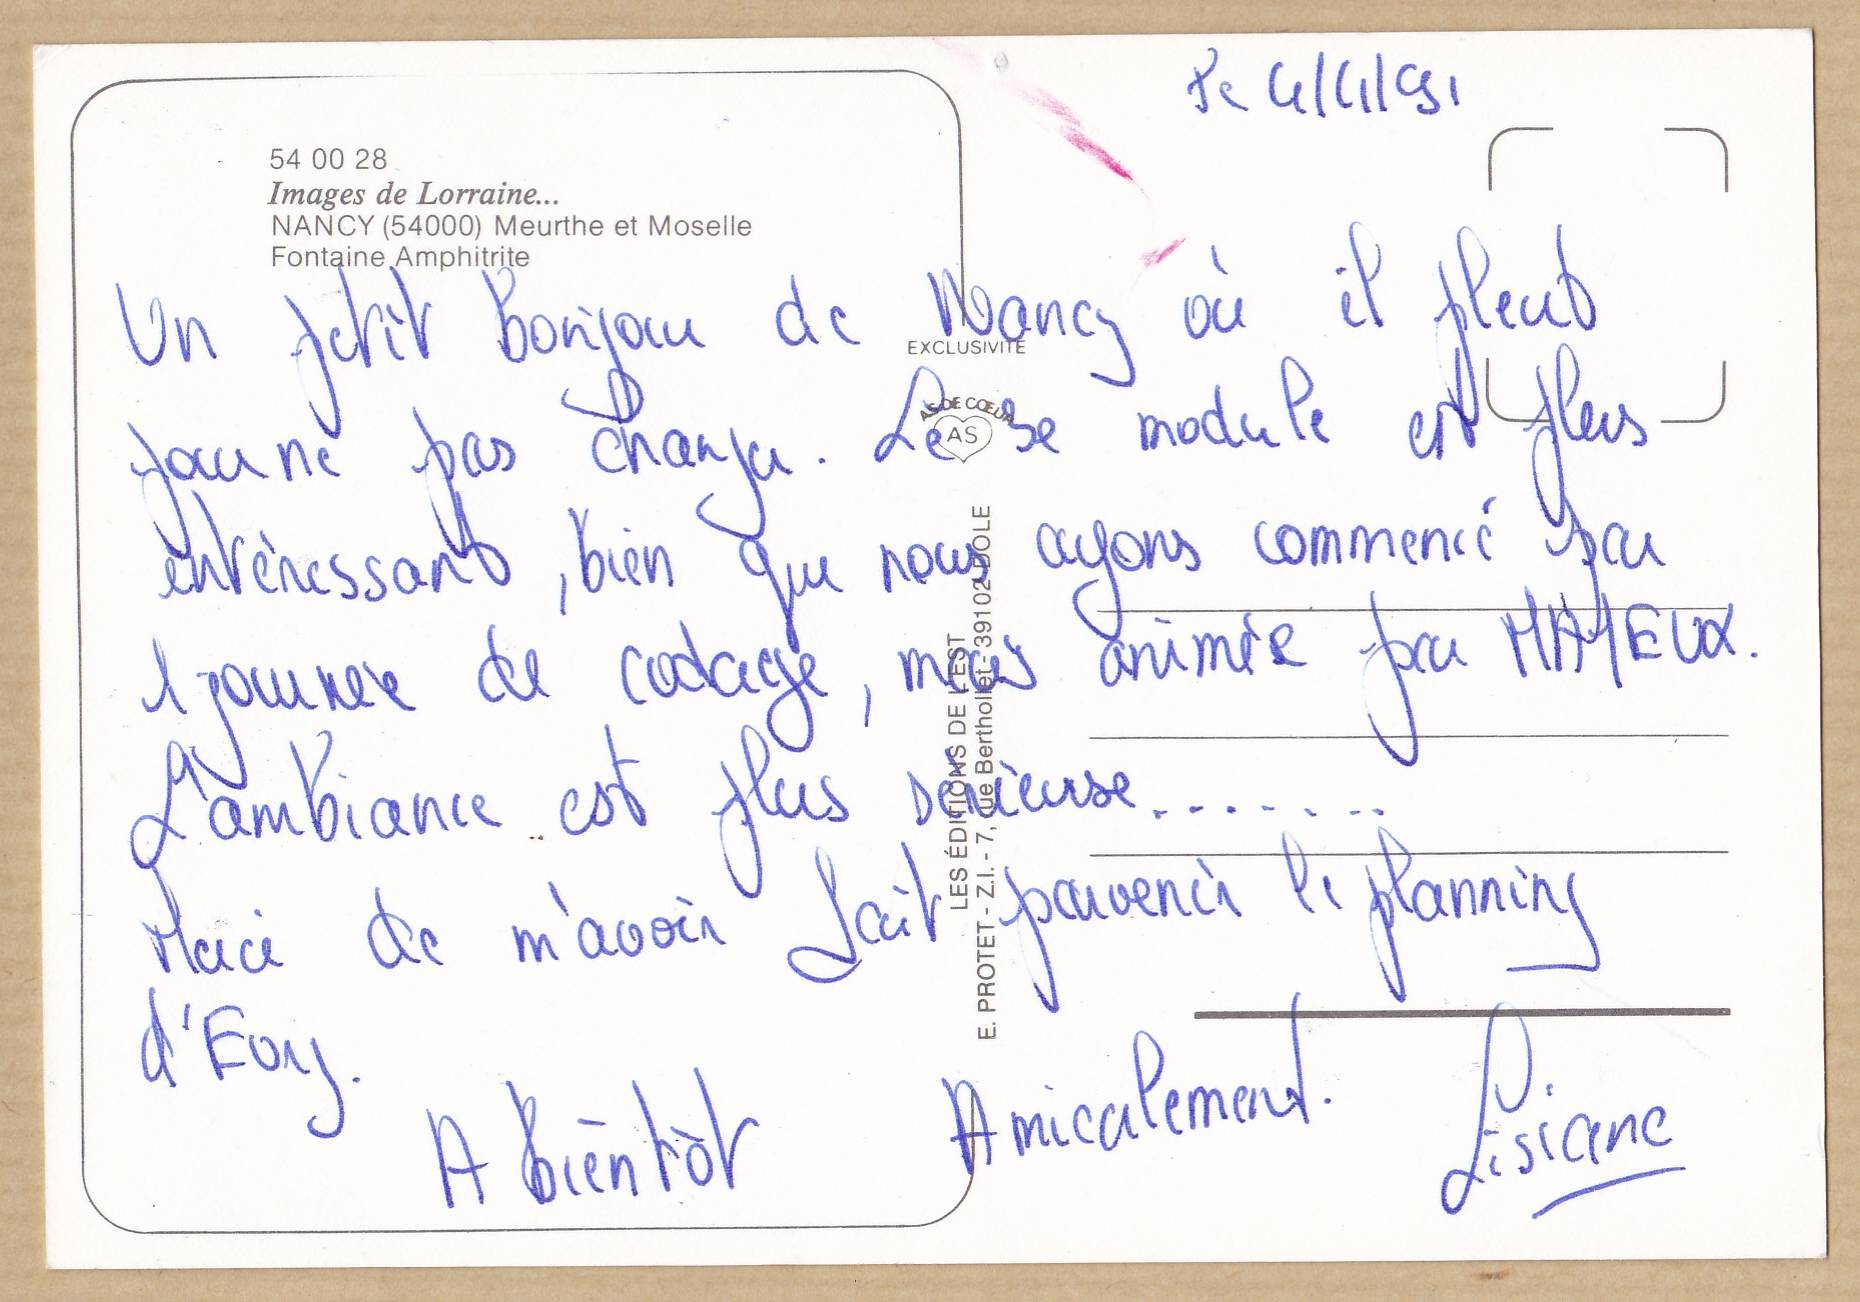 Le 4/4/91
54 00 28
Images de Lorraine...
NANCY (54000) Meurthe et Moselle
Fontaine Amphitrite
Un petit bonjour de Nancy où il pleut
pour ne pas changer. Le 3e module est plus
intéressant, bien que nous ayons commencé par
1 journée de codage, mais animée par
L'ambiance est plus sérieuse.......
Merci de m'avoir fait parvenir le planning
d'Evry.
A bientôt Amicalement.
Lisiane
EXCLUSIVITÉ
AS DE COEUR
AS
LES ÉDITIONS DE L'EST
E. PROTET - Z.I. - 7, rue Berthollet - 39102 DOLE